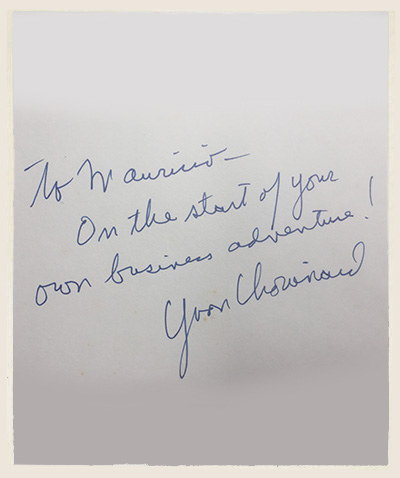 To Mauricio—
On the start of your
own business adventure!
Yvon Chouinard